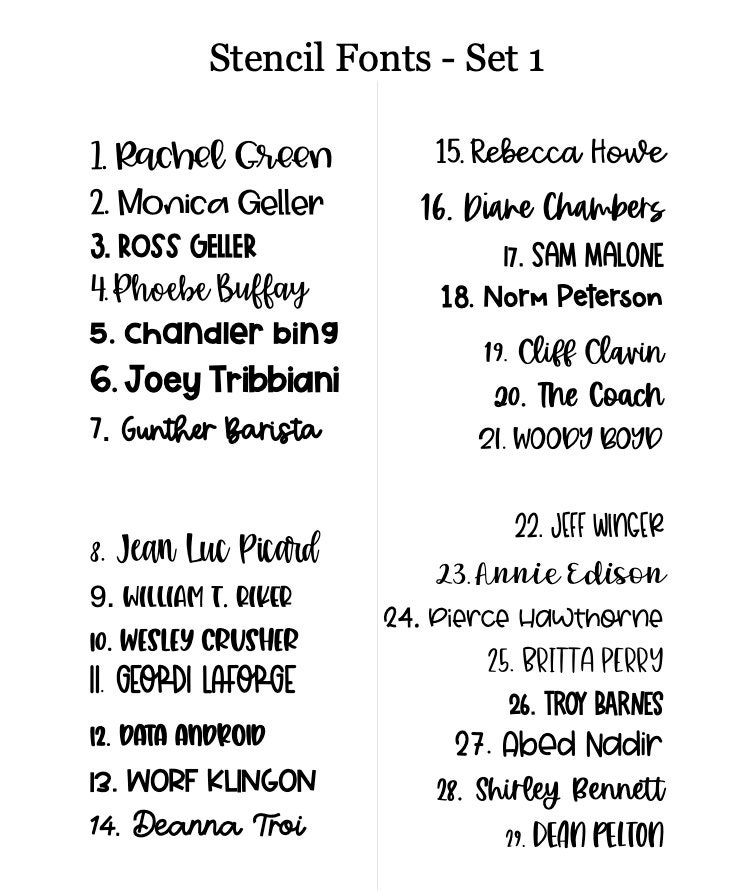 Stencil Fonts - Set 1
1. Rachel Green
2. Monica Geller
3. ROSS GELLER
4. Phoebe Buffay
5. chandler bing
6. Joey Tribbiani
7. Gunther Barista
8. Jean Luc Picard
9. WILLIAM T. RIKER
10. WESLEY CRUSHER
11. GEORDI LAFORGE
12. DATA ANDROID
13. WORF KLINGON
14. Deanna Troi
15. Rebecca Howe
16. Diane Chambers
17. SAM MALONE
18. Norm Peterson
19. Cliff Clavin
20. The Coach
21. WOODY BOYD
22. JEFF WINGER
23. Annie Edison
24. Pierce Hawthorne
25. BRITTA PERRY
26. TROY BARNES
27. Abed Nadir
28. Shirley Bennett
29. DEAN PELTON